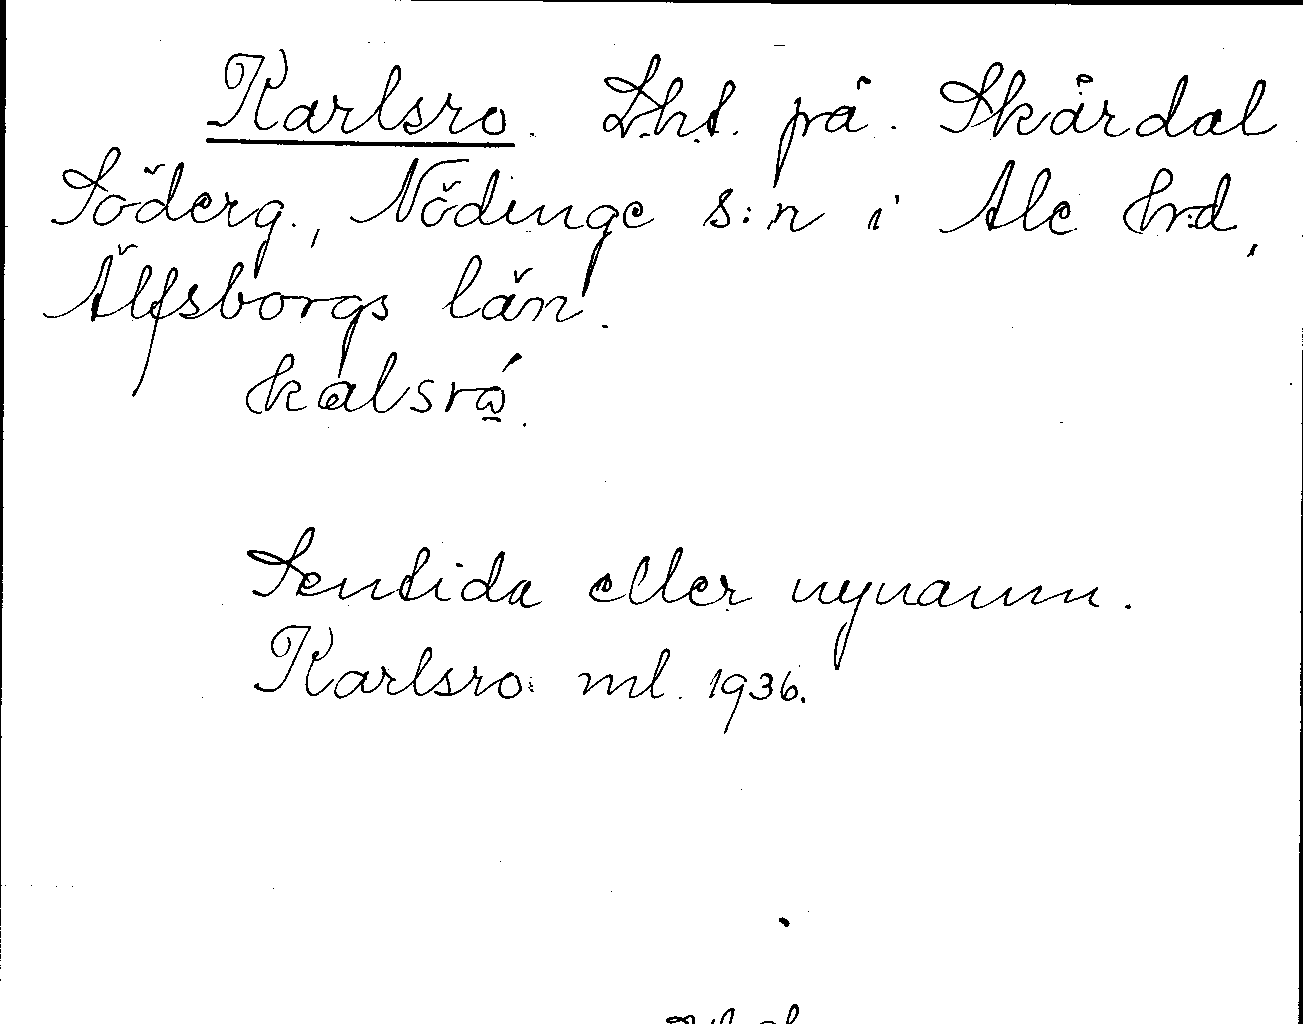 Karlsro. Lht. på. Skårdal
Söderg., Nödinge s:n i Ale hrd,
Älfsborgs län.
kalsró̱.
Sentida eller nynamn.
Karlsro ml. 1936.